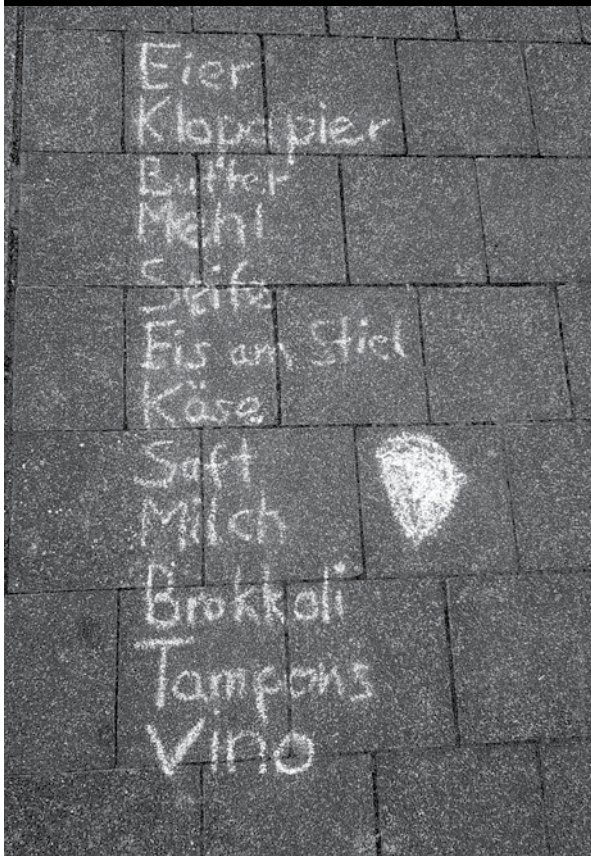 Eier
Klopapier
Butter
Mehl
Seife
Eis am Stiel
Käse
Saft
Milch
Brokkoli
Tampons
Vino